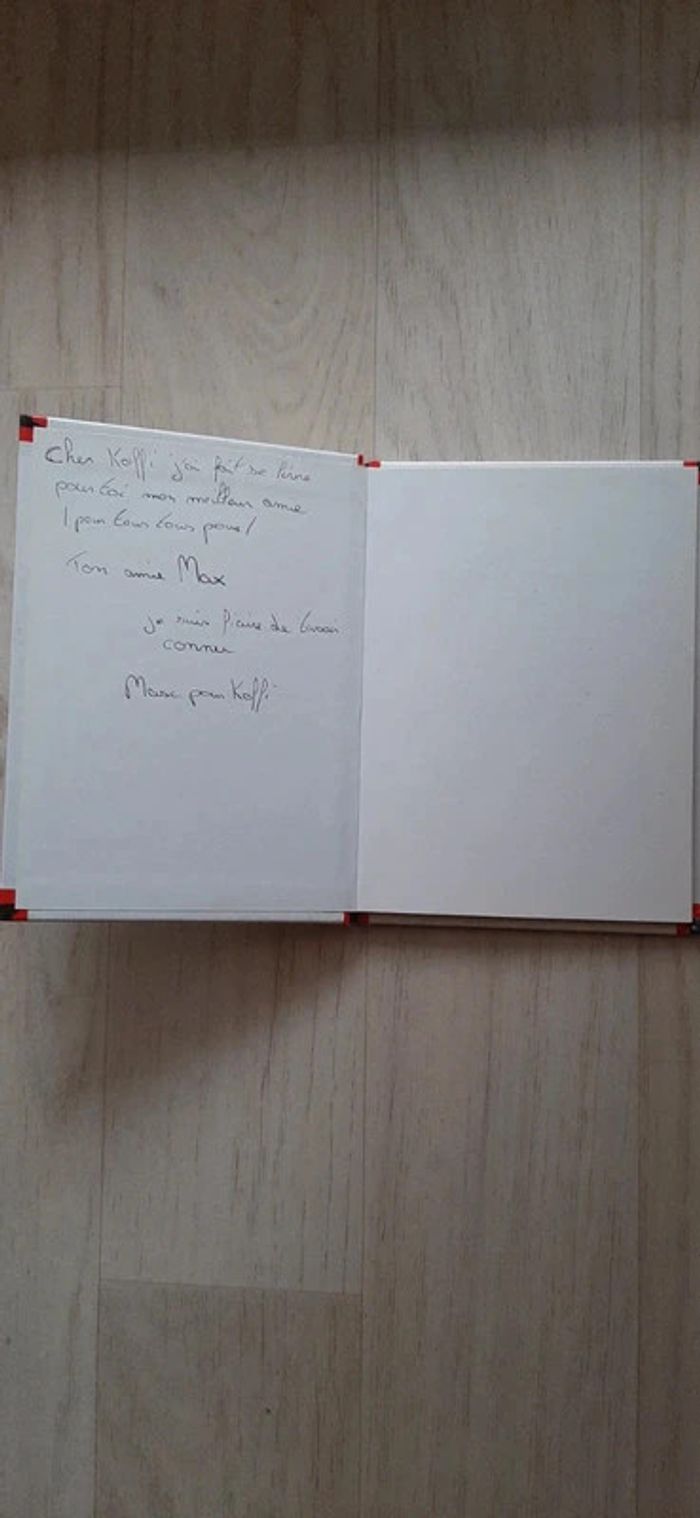 Cher Koffi j'ai fait se livre
pour toi mon meilleur amie
1 pour tous tous pour 1
Ton amie Max
je suis fiaire de tavoir
connu
Max pour Koffi